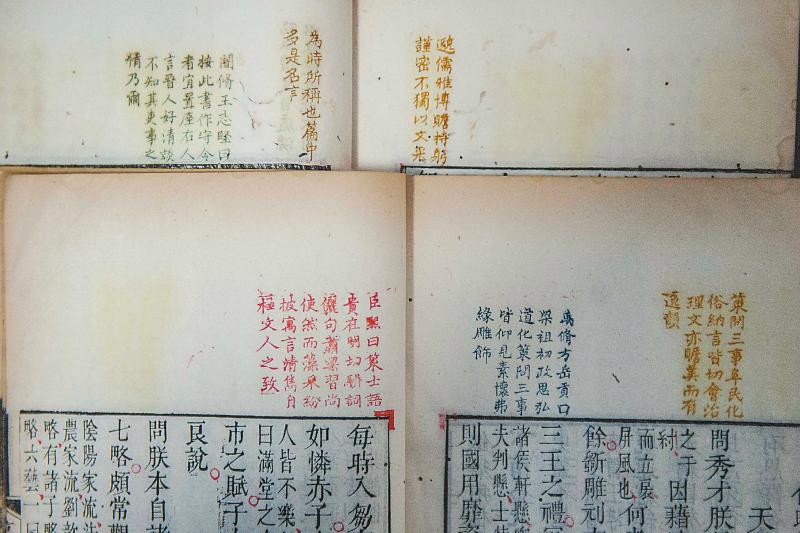 遜儒雅博贍持躬
謹密不獨以文采
為時所稱也篇中
多是名言
聞脩王志堅曰
按此書作守令
者宜置座右人
言晉人好清談
不知其吏事之
精乃爾
策問三事阜民化
俗納言皆切會治
理文亦贍美而有
逸韻
禹脩方岳貢曰
梁祖初政思弘
道化策問三事
皆仰見素懷弗
緣雕飾
天
問秀才朕
之于因藉
紂
而立扆
屏風也何
餘斲雕刻
三王之禮
諸侯軒懸
夫判懸士
則國用靡
臣熙曰策士語
貴在明切駢詞
儷句蕭梁習尚
使然而藻采紛
披寓言情雋自
極文人之致
每時入芻
如憐赤子
人皆不樂
曰滿堂之
市之賦子
良說
問朕本自諸
七略頗常觀
陰陽家流法
農家流劉歆
略有諸子略
略六藝一曰